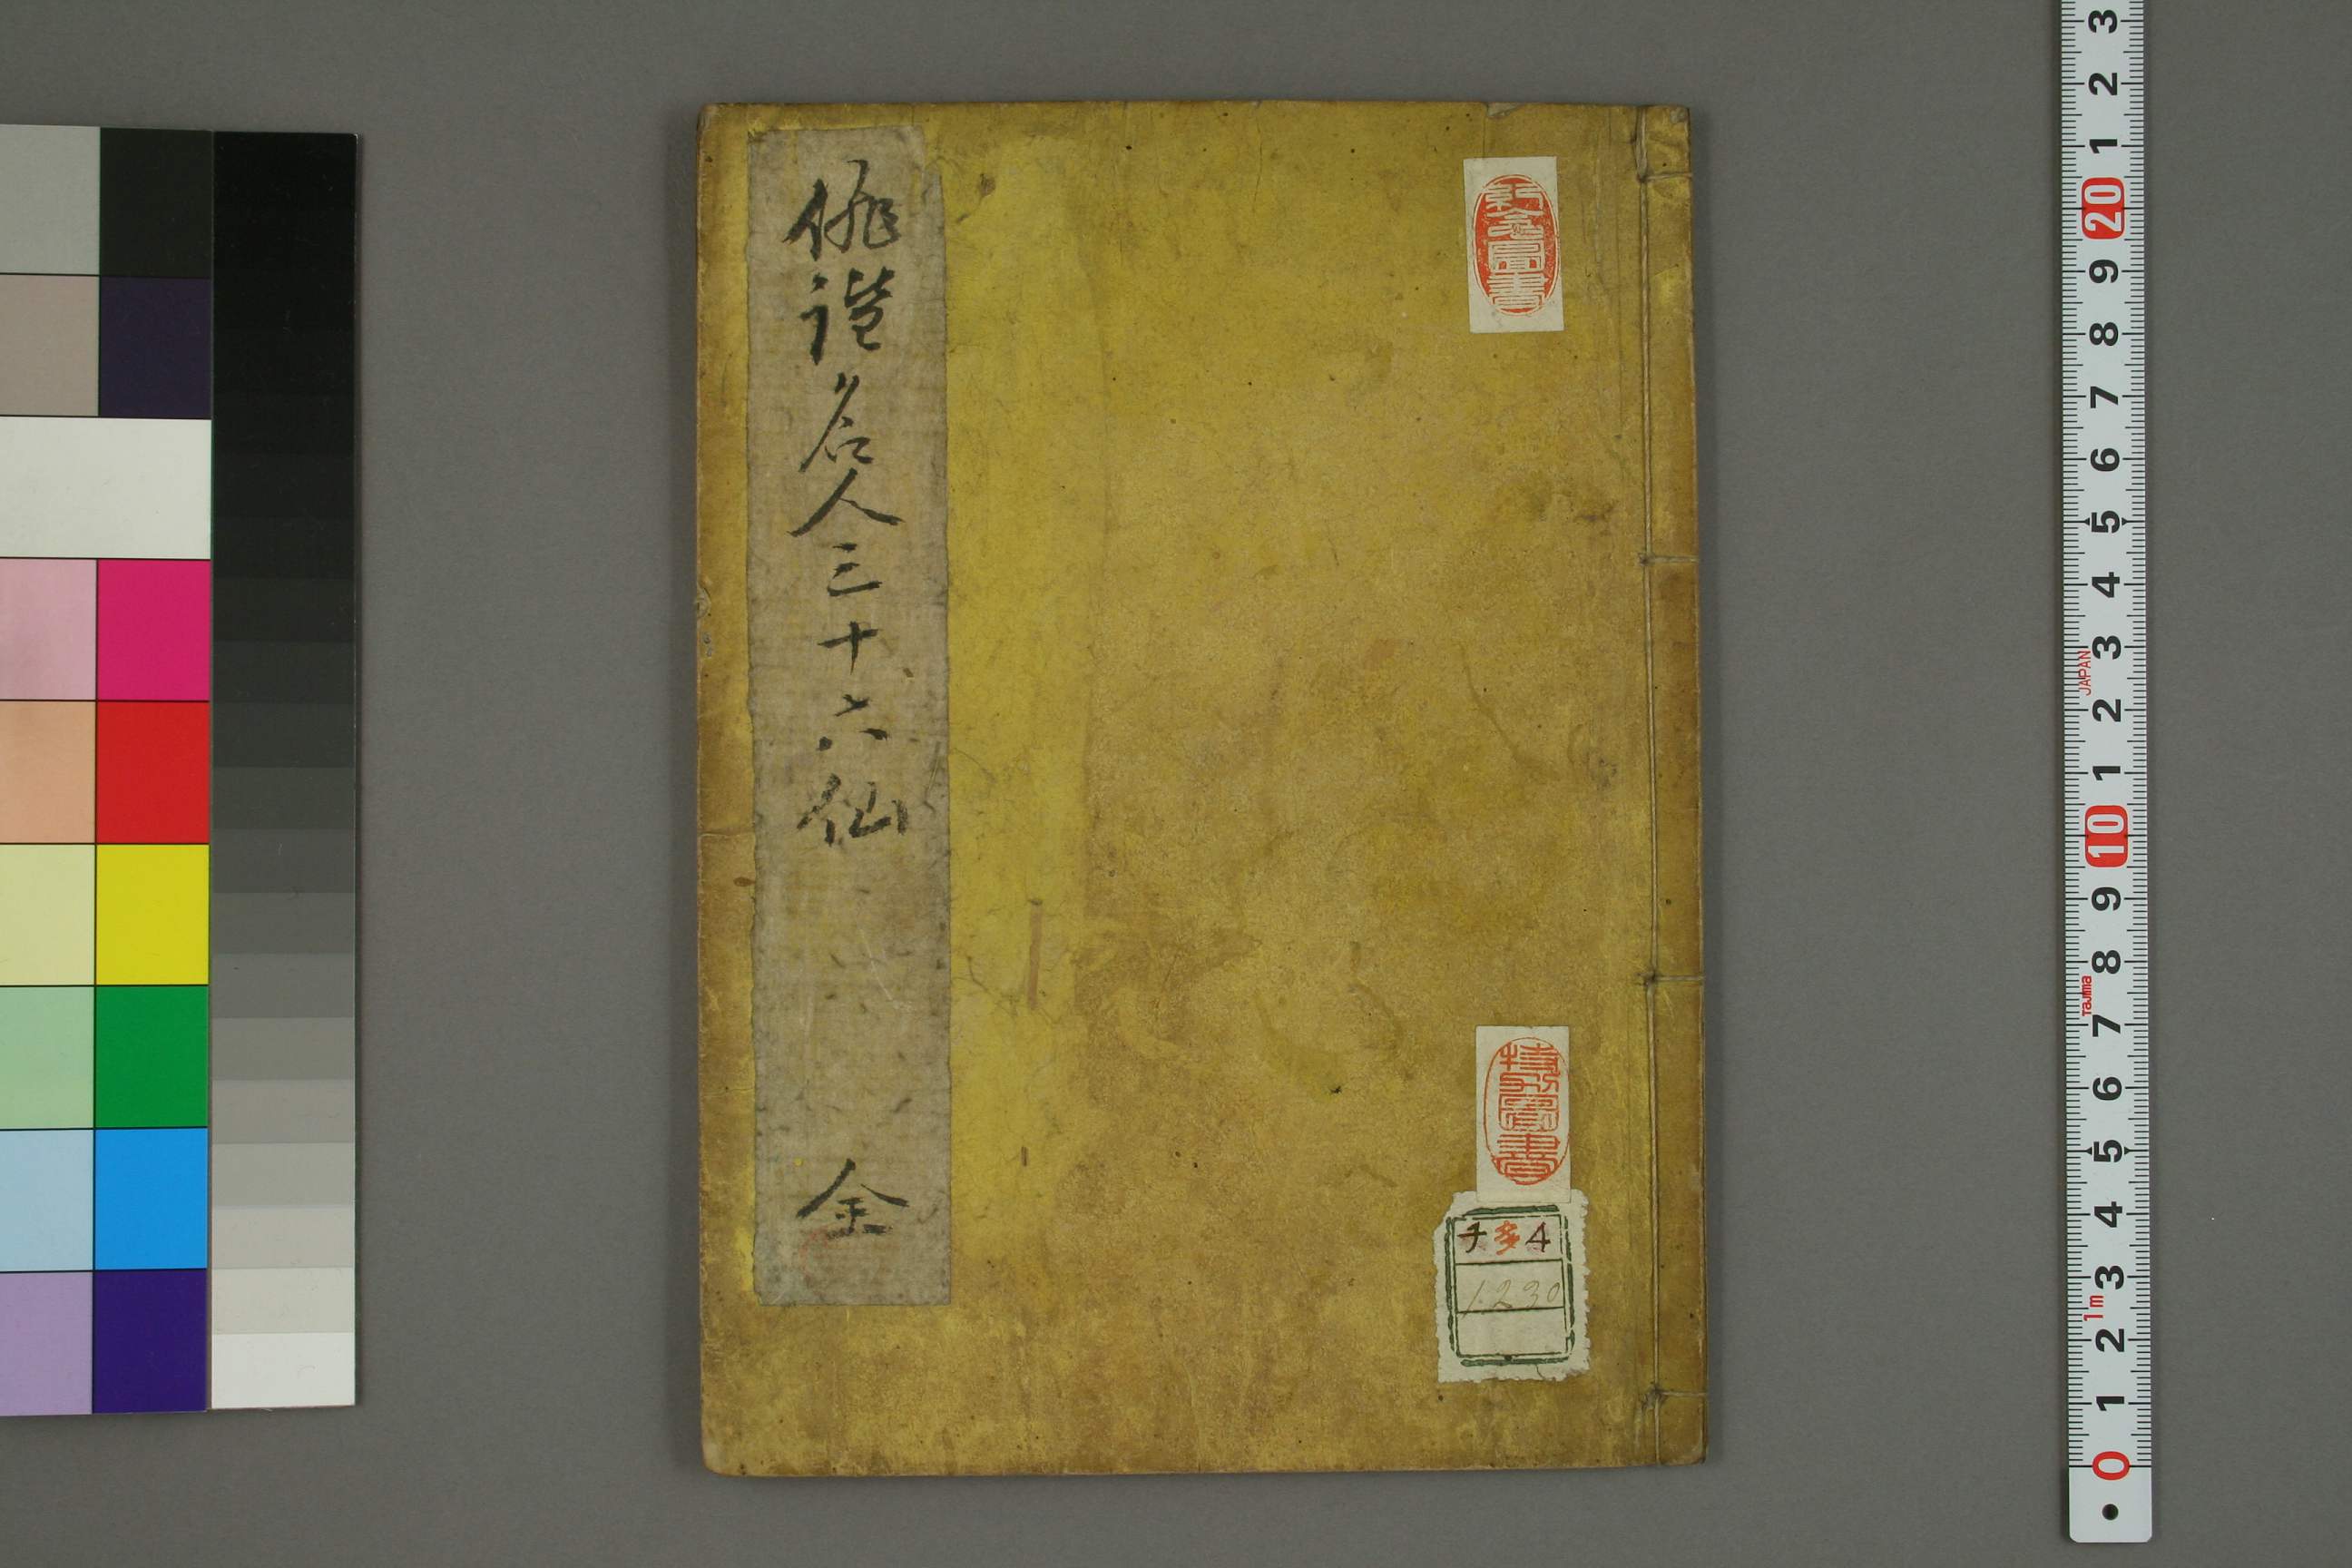 俳諧名人三十六仙
全
紀念圖書
特別圖書
チ多4
1230
JAPAN
Tajima
1m
3
2
1
20
9
8
7
6
5
4
3
2
1
10
9
8
7
6
5
4
3
2
1
0